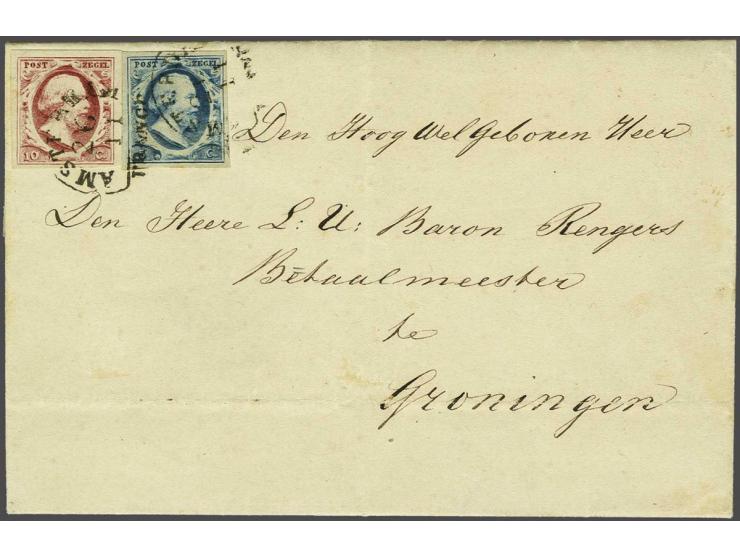 POST ZEGEL POST ZEGEL
10 C. C.
AMSTERDAM
FRANCO
Den Hoog Wel Geboren Heer
Den Heere L: U: Baron Rengers
Betaalmeester
te
Groningen